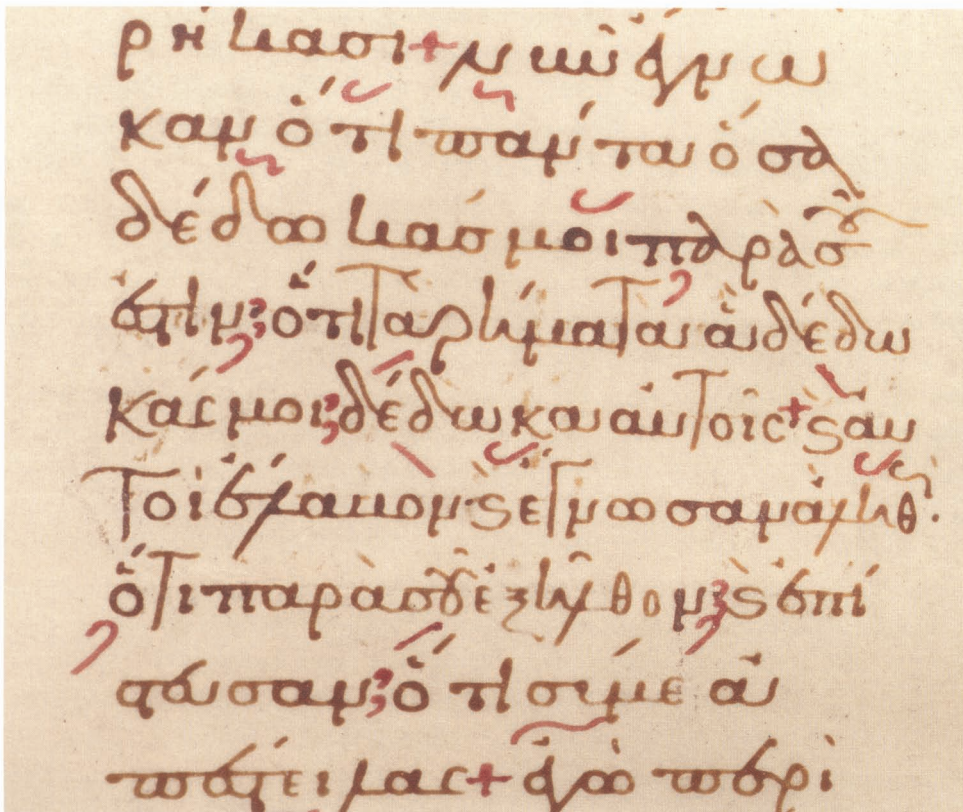 ρήκασι + νῦν ἔγνω
καν ὅτι πάντα ὅσα
δέδωκάς μοι παρὰ σοῦ
ἐστὶν ; ὅτι τὰ ῥήματα ἃ δέδω
κάς μοι ; δέδωκα αὐτοῖς + ϛ αὐ
τοὶ ἔλαβον ϛ ἔγνωσαν ἀληθ.
ὅτι παρὰ σοῦ ἐξῆλθον ; ϛ ἐπί
στευσαν ; ὅτι σύ με ἀ
πέστειλας + ἐγὼ περὶ